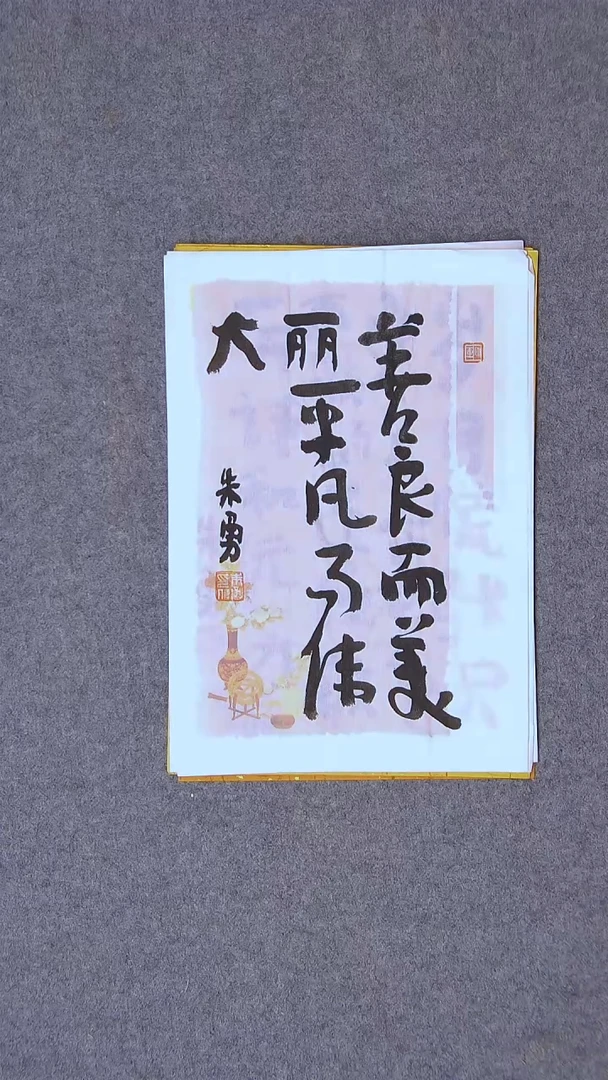 善良而美
丽平凡而伟
大
朱勇